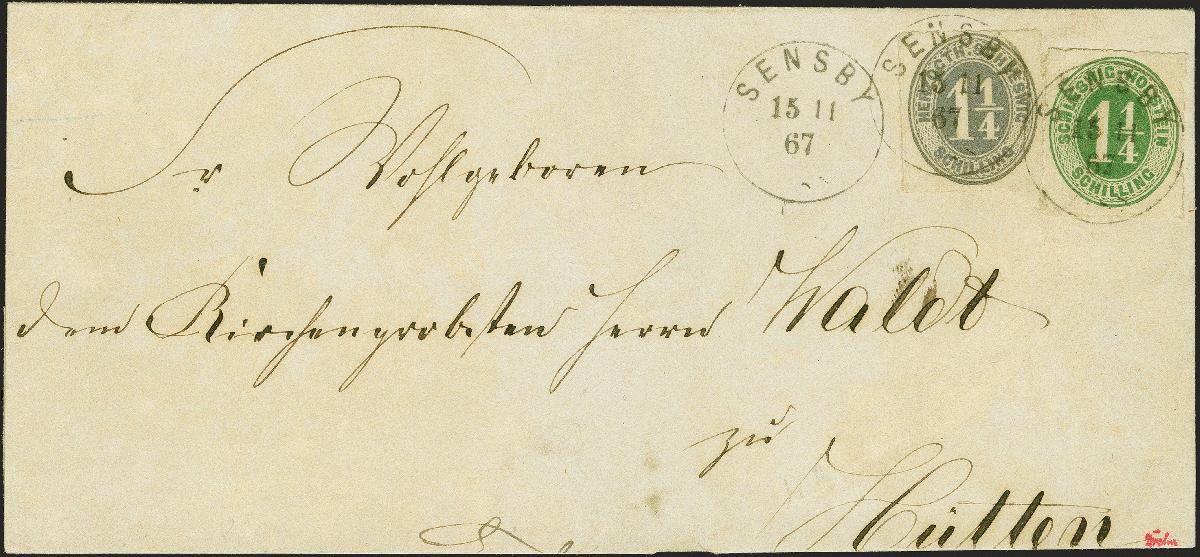 SENSBY
15 11
67
SENSBY
15 11
67
HERZOGTH. SCHLESWIG
1 1/4
SCHILLING
SENSBY
15 11
67
SCHLESWIG-HOLSTEIN
1 1/4
SCHILLING
Sr Wohlgeboren
dem Kirchenprobsten Herrn Waldt
zu
Hütten